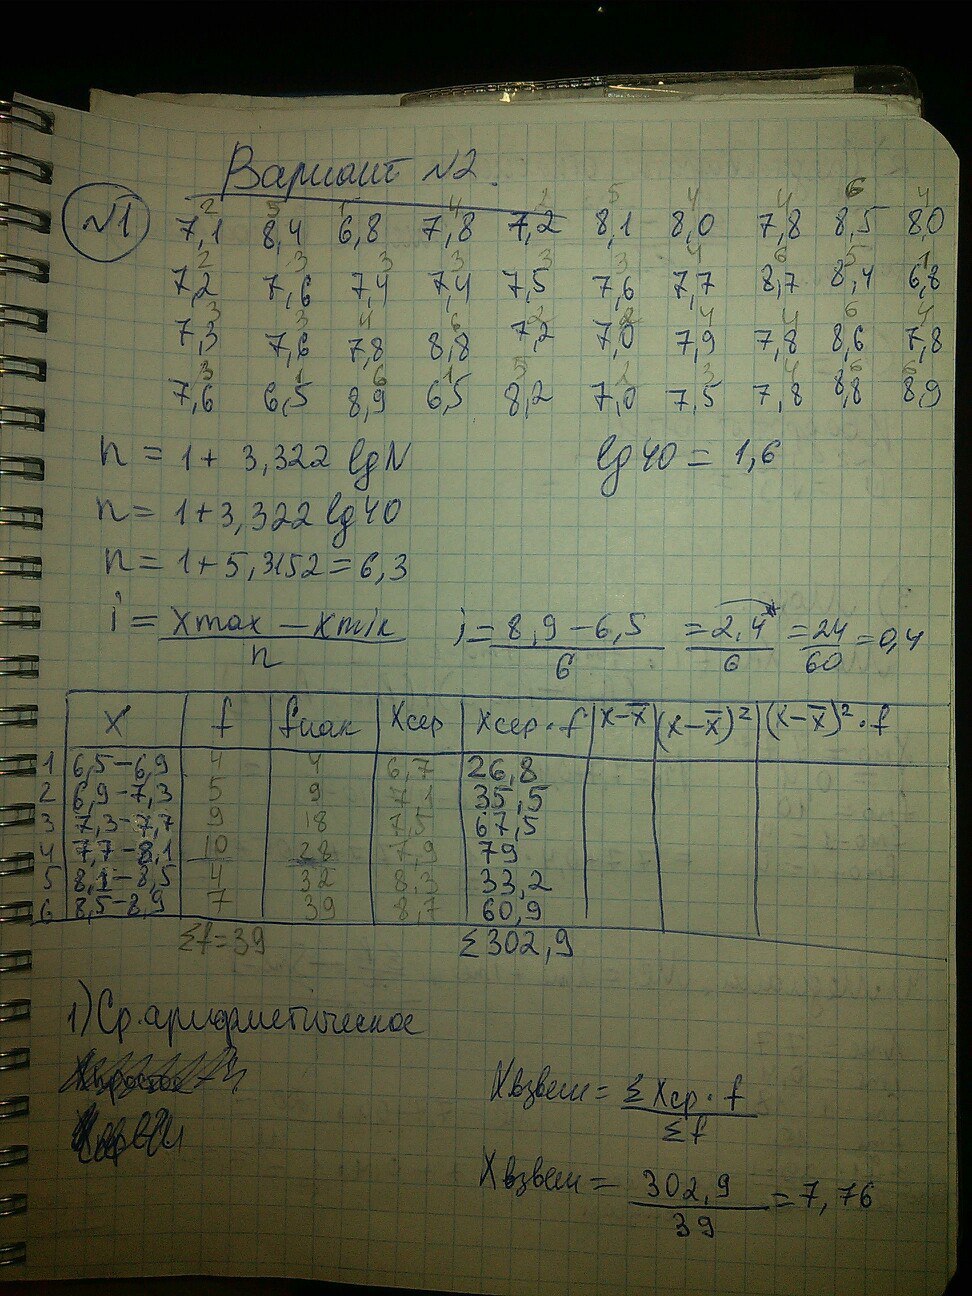 Вариант №2.
№1
2 5 1 4 2 5 4 4 6 4
7,1 8,4 6,8 7,8 7,2 8,1 8,0 7,8 8,5 8,0
2 3 3 3 3 3 4 6 5 1
7,2 7,6 7,4 7,4 7,5 7,6 7,7 8,7 8,4 6,8
3 3 4 6 2 2 4 4 6 4
7,3 7,6 7,8 8,8 7,2 7,0 7,9 7,8 8,6 7,8
3 1 6 1 5 2 3 4 6 6
7,6 6,5 8,9 6,5 8,2 7,0 7,5 7,8 8,8 8,9
n = 1 + 3,322 lgN lg40 = 1,6
n = 1+3,322 lg40
n = 1+5,3152 = 6,3
i = xmax − xmin / n i = 8,9 − 6,5 / 6 = 2,4 / 6 = 24 / 60 = 0,4
X f fнак Xсер Xсер · f X−X̅ (X−X̅)² (X−X̅)² · f
1 6,5−6,9 4 4 6,7 26,8
2 6,9−7,3 5 9 7,1 35,5
3 7,3−7,7 9 18 7,5 67,5
4 7,7−8,1 10 28 7,9 79
5 8,1−8,5 4 32 8,3 33,2
6 8,5−8,9 7 39 8,7 60,9
Σf=39 Σ302,9
1) Ср. арифметическое
Xвзвеш = ΣXср · f / Σf
Xвзвеш = 302,9 / 39 = 7,76